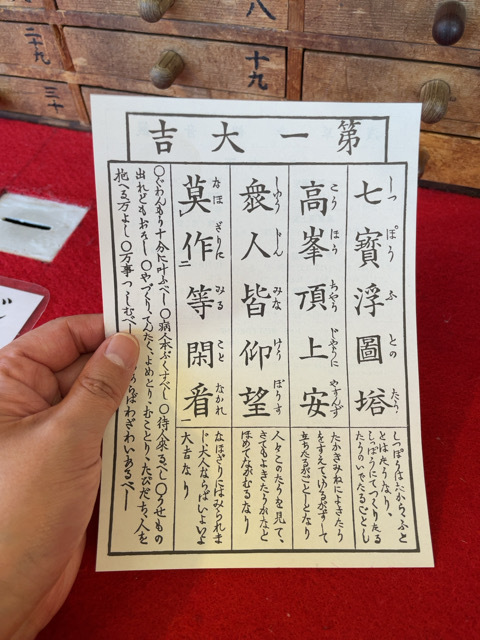 二十九
三十
十八
十九
第一大吉
七寶浮圖塔
しつ ぽう ふ との たう
しつぽうはたからくふと
とはたうなり、
しつぽうにてつくりたる
たうのいでたるごとし
高峯頂上安
こう ほう ちやう じやうに やすんず
たかきみねによきたう
をすえてゆるがずして
立ちたるがごとしとなり
衆人皆仰望
しゆう じん みな げう ぼうす
人々このたうを見て、
さてもよきたうかなと
ほめてながむるなり
莫作等閑看
なほ ざりに みる こと なかれ
なほざりにはみられま
じ大人ならばいよいよ
大吉なり
〇ぐわんもう十分に叶ふべし〇病人本ぶくすべし〇待人来るべし〇うせもの
出れどもおそし〇やづくり、てんたく、よめとり、むことり、たびだち、人を
抱へる万よし〇万事つゝしむべし らばわざわいあるべし